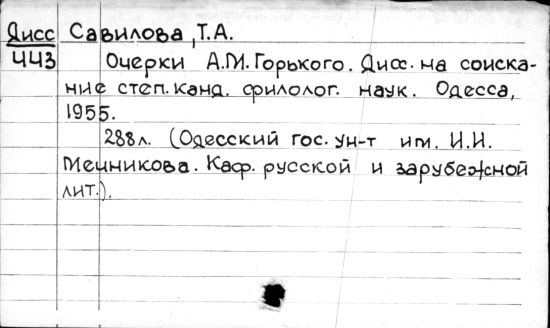 Дисс Савилова, Т.А.
443 Очерки А.М. Горького. Дисс. на соиска-
ние степ. канд. филолог. наук. Одесса,
1955.
288л. (Одесский гос. ун-т им. И.И.
Мечникова. Каф. русской и зарубежной
лит.).